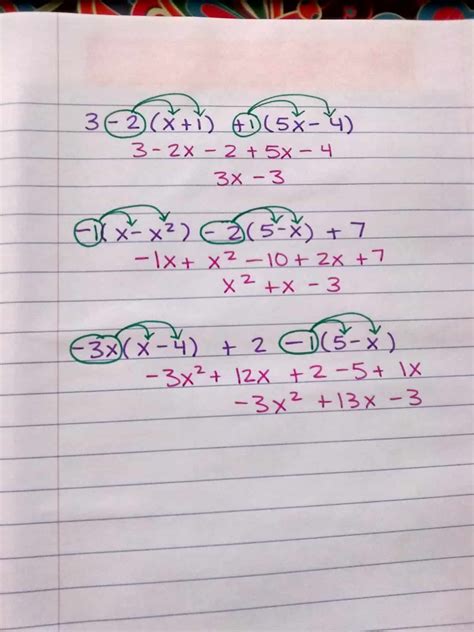 3 -2 (x+1) +1 (5x - 4)
3 - 2x - 2 + 5x - 4
3x - 3
-1 (x - x²) -2 (5 - x) + 7
-1x + x² - 10 + 2x + 7
x² + x - 3
-3x (x - 4) + 2 -1 (5 - x)
-3x² + 12x + 2 - 5 + 1x
-3x² + 13x - 3